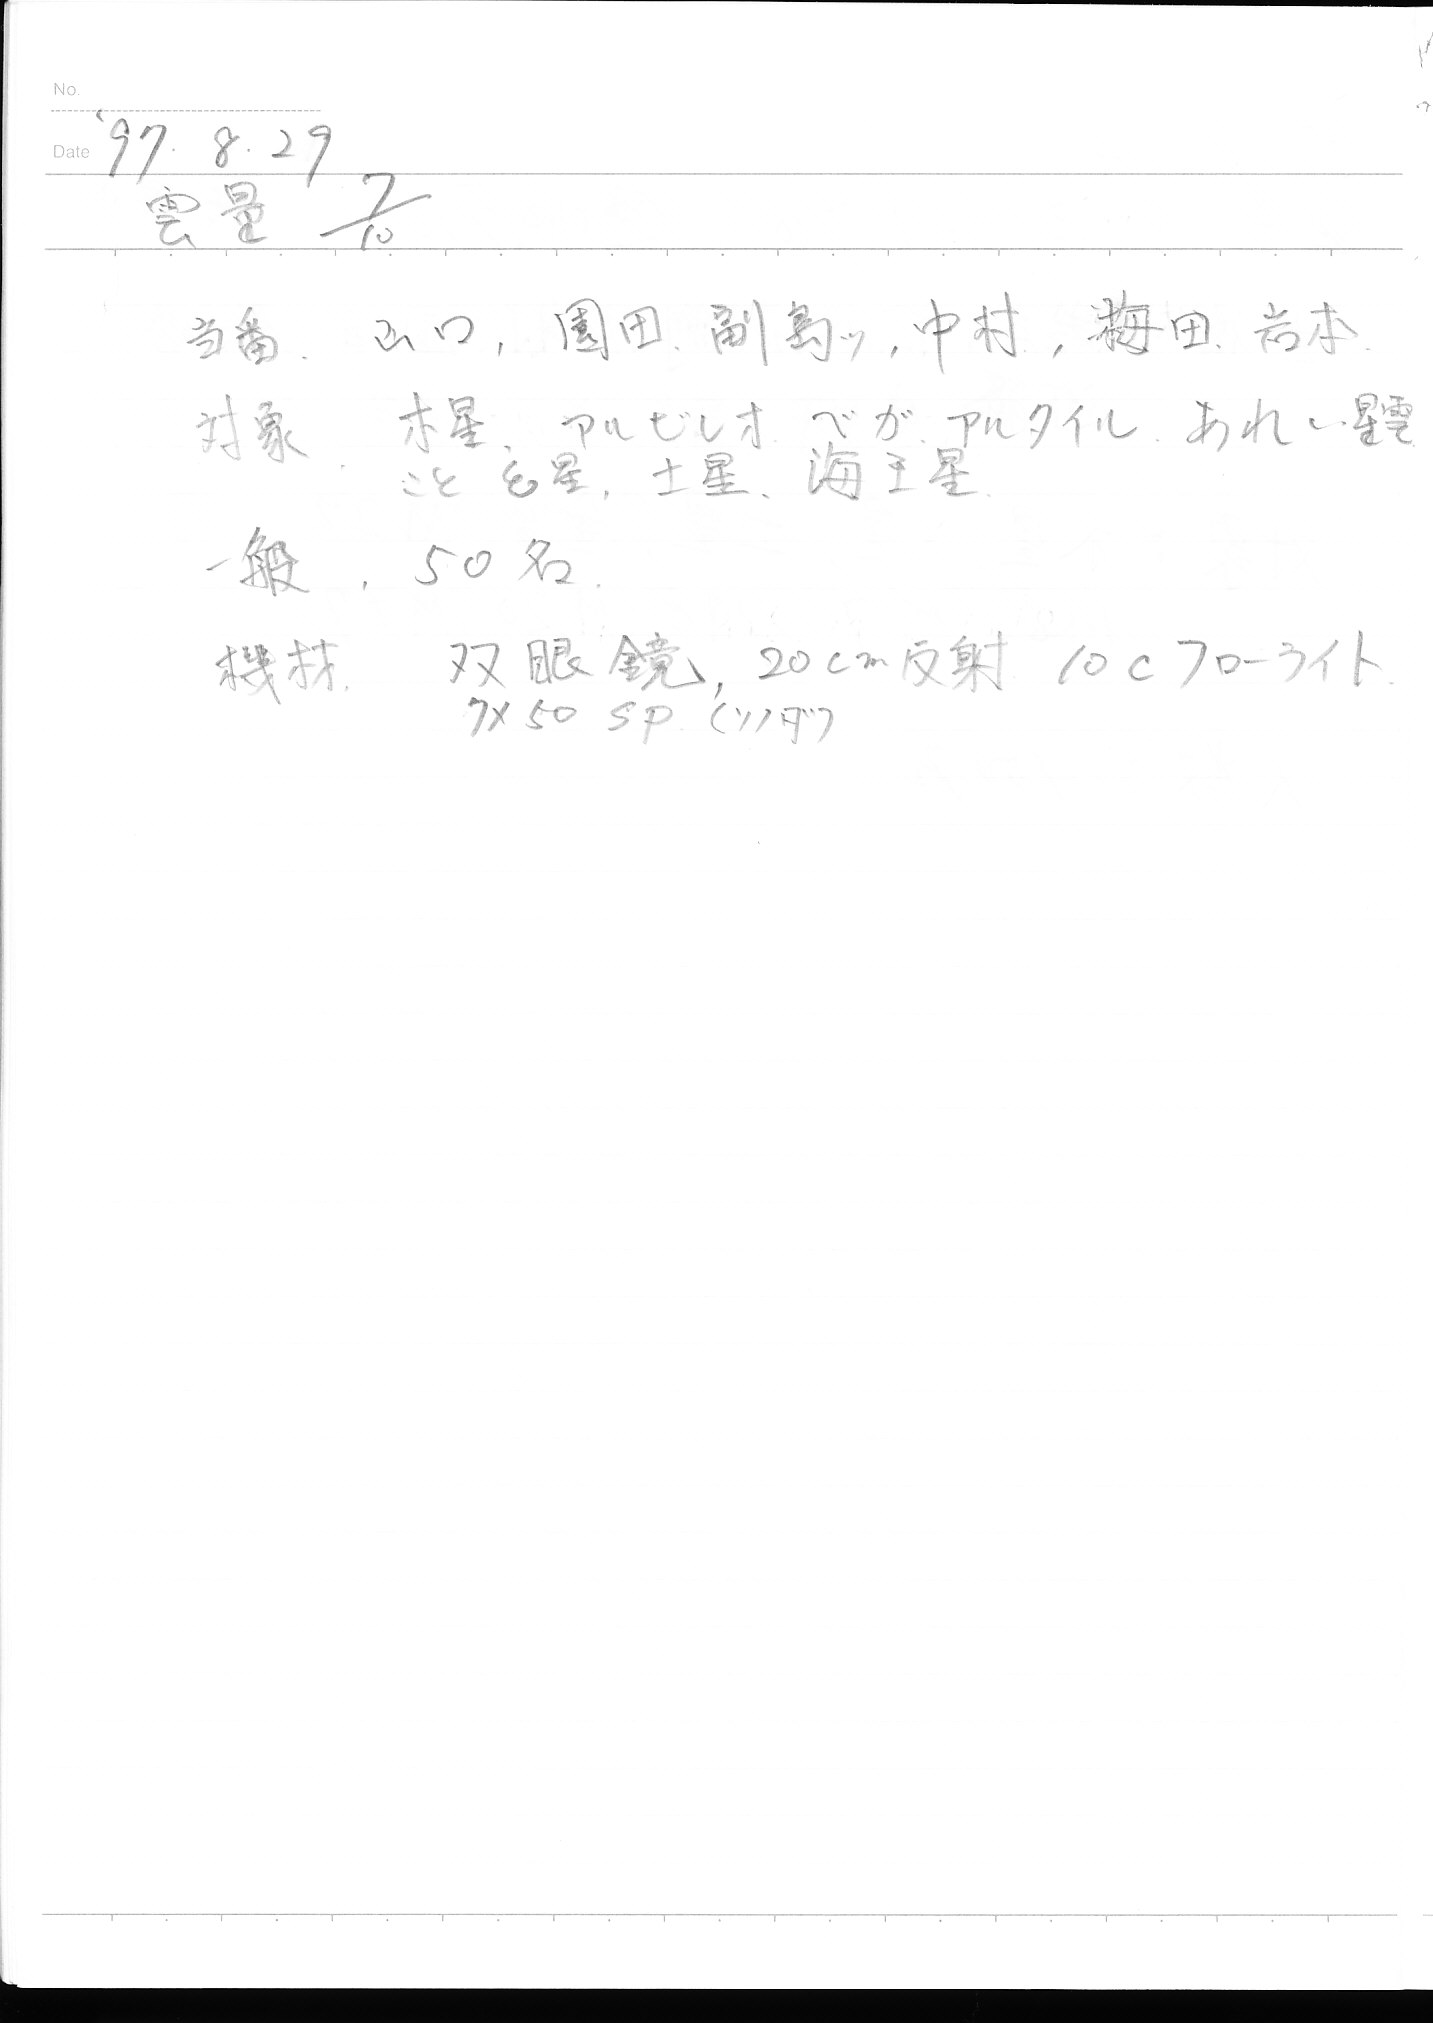 No.
Date '97. 8. 29
雲量 7/10
当番. 山口, 園田、副島ッ, 中村, 梅田、岩本.
対象. 木星、アルビレオ、ベガ、アルタイル、あれい星雲
こと 星, 土星、海王星.
一般, 50名.
機材. 双眼鏡, 20cm反射 10cフローライト.
7×50 SP